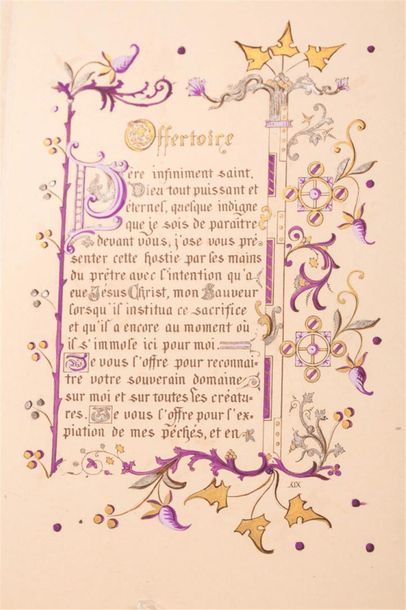 Offertoire
Père infiniment saint,
Dieu tout puissant et
éternel, quelque indigne
que je sois de paraître
devant vous, j'ose vous pré-
senter cette hostie par les mains
du prêtre avec l'intention qu'a
eue Jésus Christ, mon Sauveur
lorsqu'il institua ce sacrifice
et qu'il a encore au moment où
il s'immole ici pour moi.
Je vous l'offre pour reconnai-
tre votre souverain domaine
sur moi et sur toutes les créatu-
res. Je vous l'offre pour l'ex-
piation de mes péchés, et en
XIX